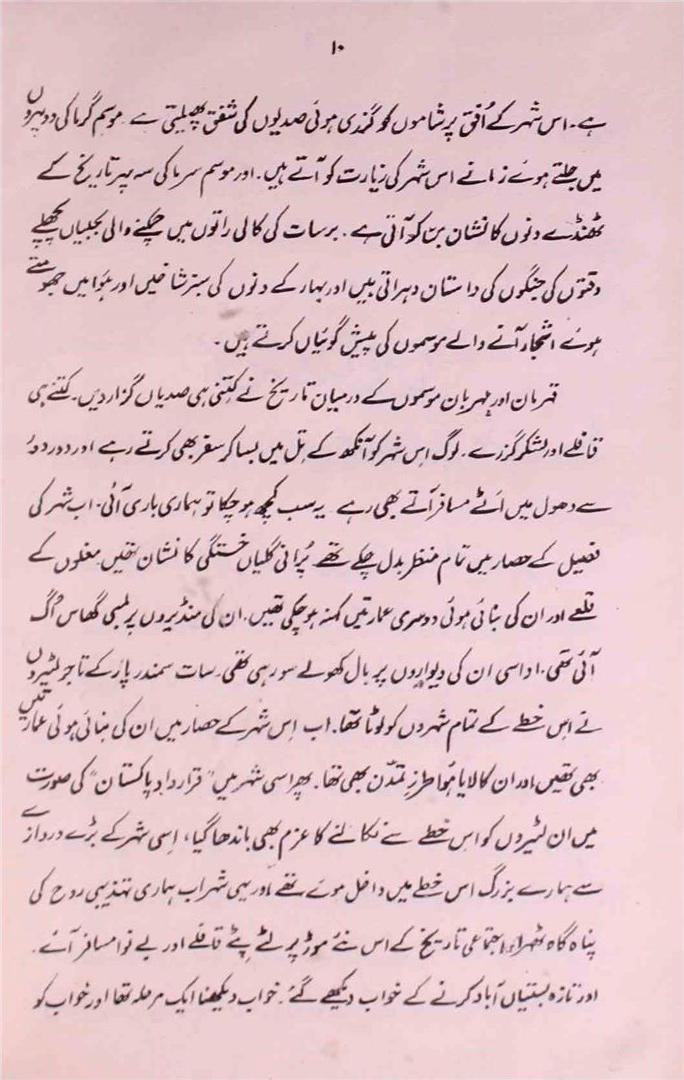 ۱۰
ہے۔ اس شہر کے اُفق پر شاموں کو گزری ہوئی صدیوں کی شفق پھیلتی ہے۔ موسمِ گرما کی دوپہروں
میں جلتے ہوئے زمانے اس شہر کی زیارت کو آتے ہیں۔ اور موسم سرما کی سہ پہر تاریخ کے
ٹھنڈے دنوں کا نشان بن کو آتی ہے۔ برسات کی کالی راتوں میں چمکنے والی بجلیاں پچھلے
وقتوں کی جنگوں کی داستان دہراتی ہیں اور بہار کے دنوں کی سبز شاخیں اور ہوا میں جھومتے
ہوئے اشجار آنے والے موسموں کی پیش گوئیاں کرتے ہیں۔
قہربان اور مہربان موسموں کے درمیان تاریخ نے کتنی ہی صدیاں گزار دیں۔ کتنے ہی
قافلے اور لشکر گزرے۔ لوگ اس شہر کو آنکھ کے تِل میں بسا کر سفر بھی کرتے رہے اور دور دور
سے دھول میں اَٹے مسافر آتے بھی رہے۔ یہ سب کچھ ہو چکا تو ہماری باری آئی۔ اب شہر کی
فصیل کے حصار میں تمام منظر بدل چکے تھے۔ پُرانی گلیاں خستگی کا نشان تھیں۔ مغلوں کے
قلعے اور ان کی بنائی ہوئی دوسری عمارتیں کہنہ ہو چکی تھیں۔ ان کی منڈیروں پر لمبی گھاس اُگ
آئی تھی۔ اداسی ان کی دیواروں پر بال کھولے سو رہی تھی۔ سات سمندر پار کے تاجر لٹیروں
نے اس خطے کے تمام شہروں کو لوٹا تھا۔ اب اِس شہر کے حصار میں ان کی بنائی ہوئی عمارتیں
بھی تھیں اور ان کا لایا ہوا طرزِ تمدّن بھی تھا۔ پھر اسی شہر میں "قراردادِ پاکستان" کی صورت
میں ان لٹیروں کو اس خطے سے نکالنے کا عزم بھی باندھا گیا، اِسی شہر کے بڑے دروازے
سے ہمارے بزرگ اس خطے میں داخل ہوئے تھے اور یہی شہر اب ہماری تہذیبی روح کی
پناہ گاہ ٹھہرا، اجتماعی تاریخ کے اس نئے موڑ پر لٹے پٹے قافلے اور بے نوا مسافر آئے۔
اور تازہ بستیاں آباد کرنے کے خواب دیکھے گئے۔ خواب دیکھنا ایک مرحلہ تھا اور خواب کو